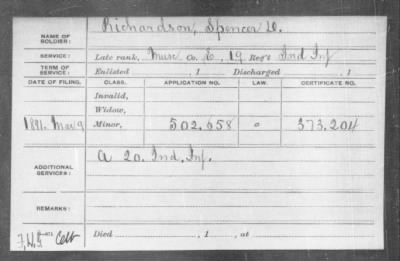 NAME OF SOLDIER: Richardson, Spencer D.
SERVICE: Late rank, Musc Co. E, 19 Reg't Ind Inf
TERM OF SERVICE: Enlisted , 1 Discharged , 1
DATE OF FILING. CLASS. APPLICATION NO. LAW. CERTIFICATE NO.
Invalid,
Widow,
1891. Mar 9 Minor, 502.658 373.204
ADDITIONAL SERVICES: A 20. Ind. Inf.
REMARKS:
Died , 1 , at